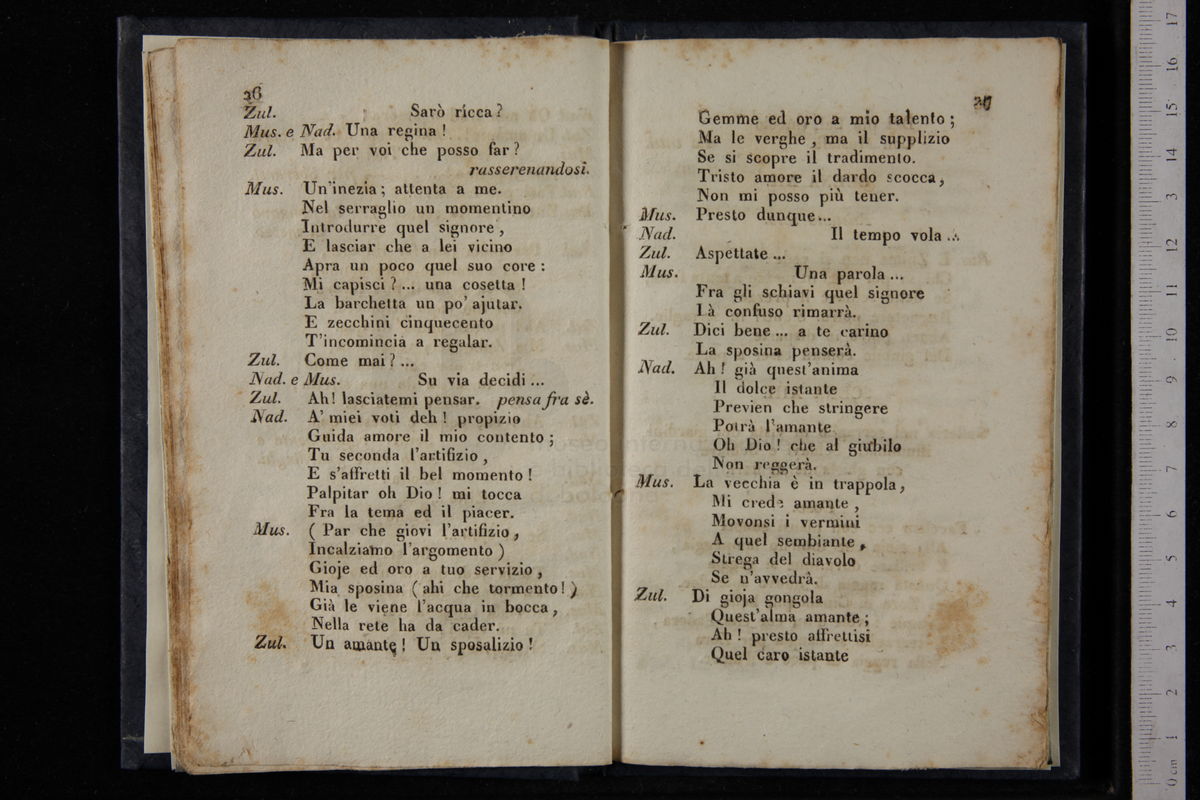 26
Zul. Sarò ricca?
Mus. e Nad. Una regina!
Zul. Ma per voi che posso far?
rasserenandosi.
Mus. Un'inezia; attenta a me.
Nel serraglio un momentino
Introdurre quel signore,
E lasciar che a lei vicino
Apra un poco quel suo core:
Mi capisci?... una cosetta!
La barchetta un po' ajutar.
E zecchini cinquecento
T'incomincia a regalar.
Zul. Come mai?...
Nad. e Mus. Su via decidi...
Zul. Ah! lasciatemi pensar. pensa fra sè.
Nad. A' miei voti deh! propizio
Guida amore il mio contento;
Tu seconda l'artifizio,
E s'affretti il bel momento!
Palpitar oh Dio! mi tocca
Fra la tema ed il piacer.
Mus. (Par che giovi l'artifizio,
Incalziamo l'argomento)
Gioje ed oro a tuo servizio,
Mia sposina (ahi che tormento!)
Già le viene l'acqua in bocca,
Nella rete ha da cader.
Zul. Un amante! Un sposalizio!
27
Gemme ed oro a mio talento;
Ma le verghe, ma il supplizio
Se si scopre il tradimento.
Tristo amore il dardo scocca,
Non mi posso più tener.
Mus. Presto dunque...
Nad. Il tempo vola...
Zul. Aspettate...
Mus. Una parola...
Fra gli schiavi quel signore
Là confuso rimarrà.
Zul. Dici bene... a te carino
La sposina penserà.
Nad. Ah! già quest'anima
Il dolce istante
Previen che stringere
Potrà l'amante
Oh Dio! che al giubilo
Non reggerà.
Mus. La vecchia è in trappola,
Mi crede amante,
Movonsi i vermini
A quel sembiante,
Strega del diavolo
Se n'avvedrà.
Zul. Di gioja gongola
Quest'alma amante;
Ah! presto affrettisi
Quel caro istante
0 cm 1 2 3 4 5 6 7 8 9 10 11 12 13 14 15 16 17